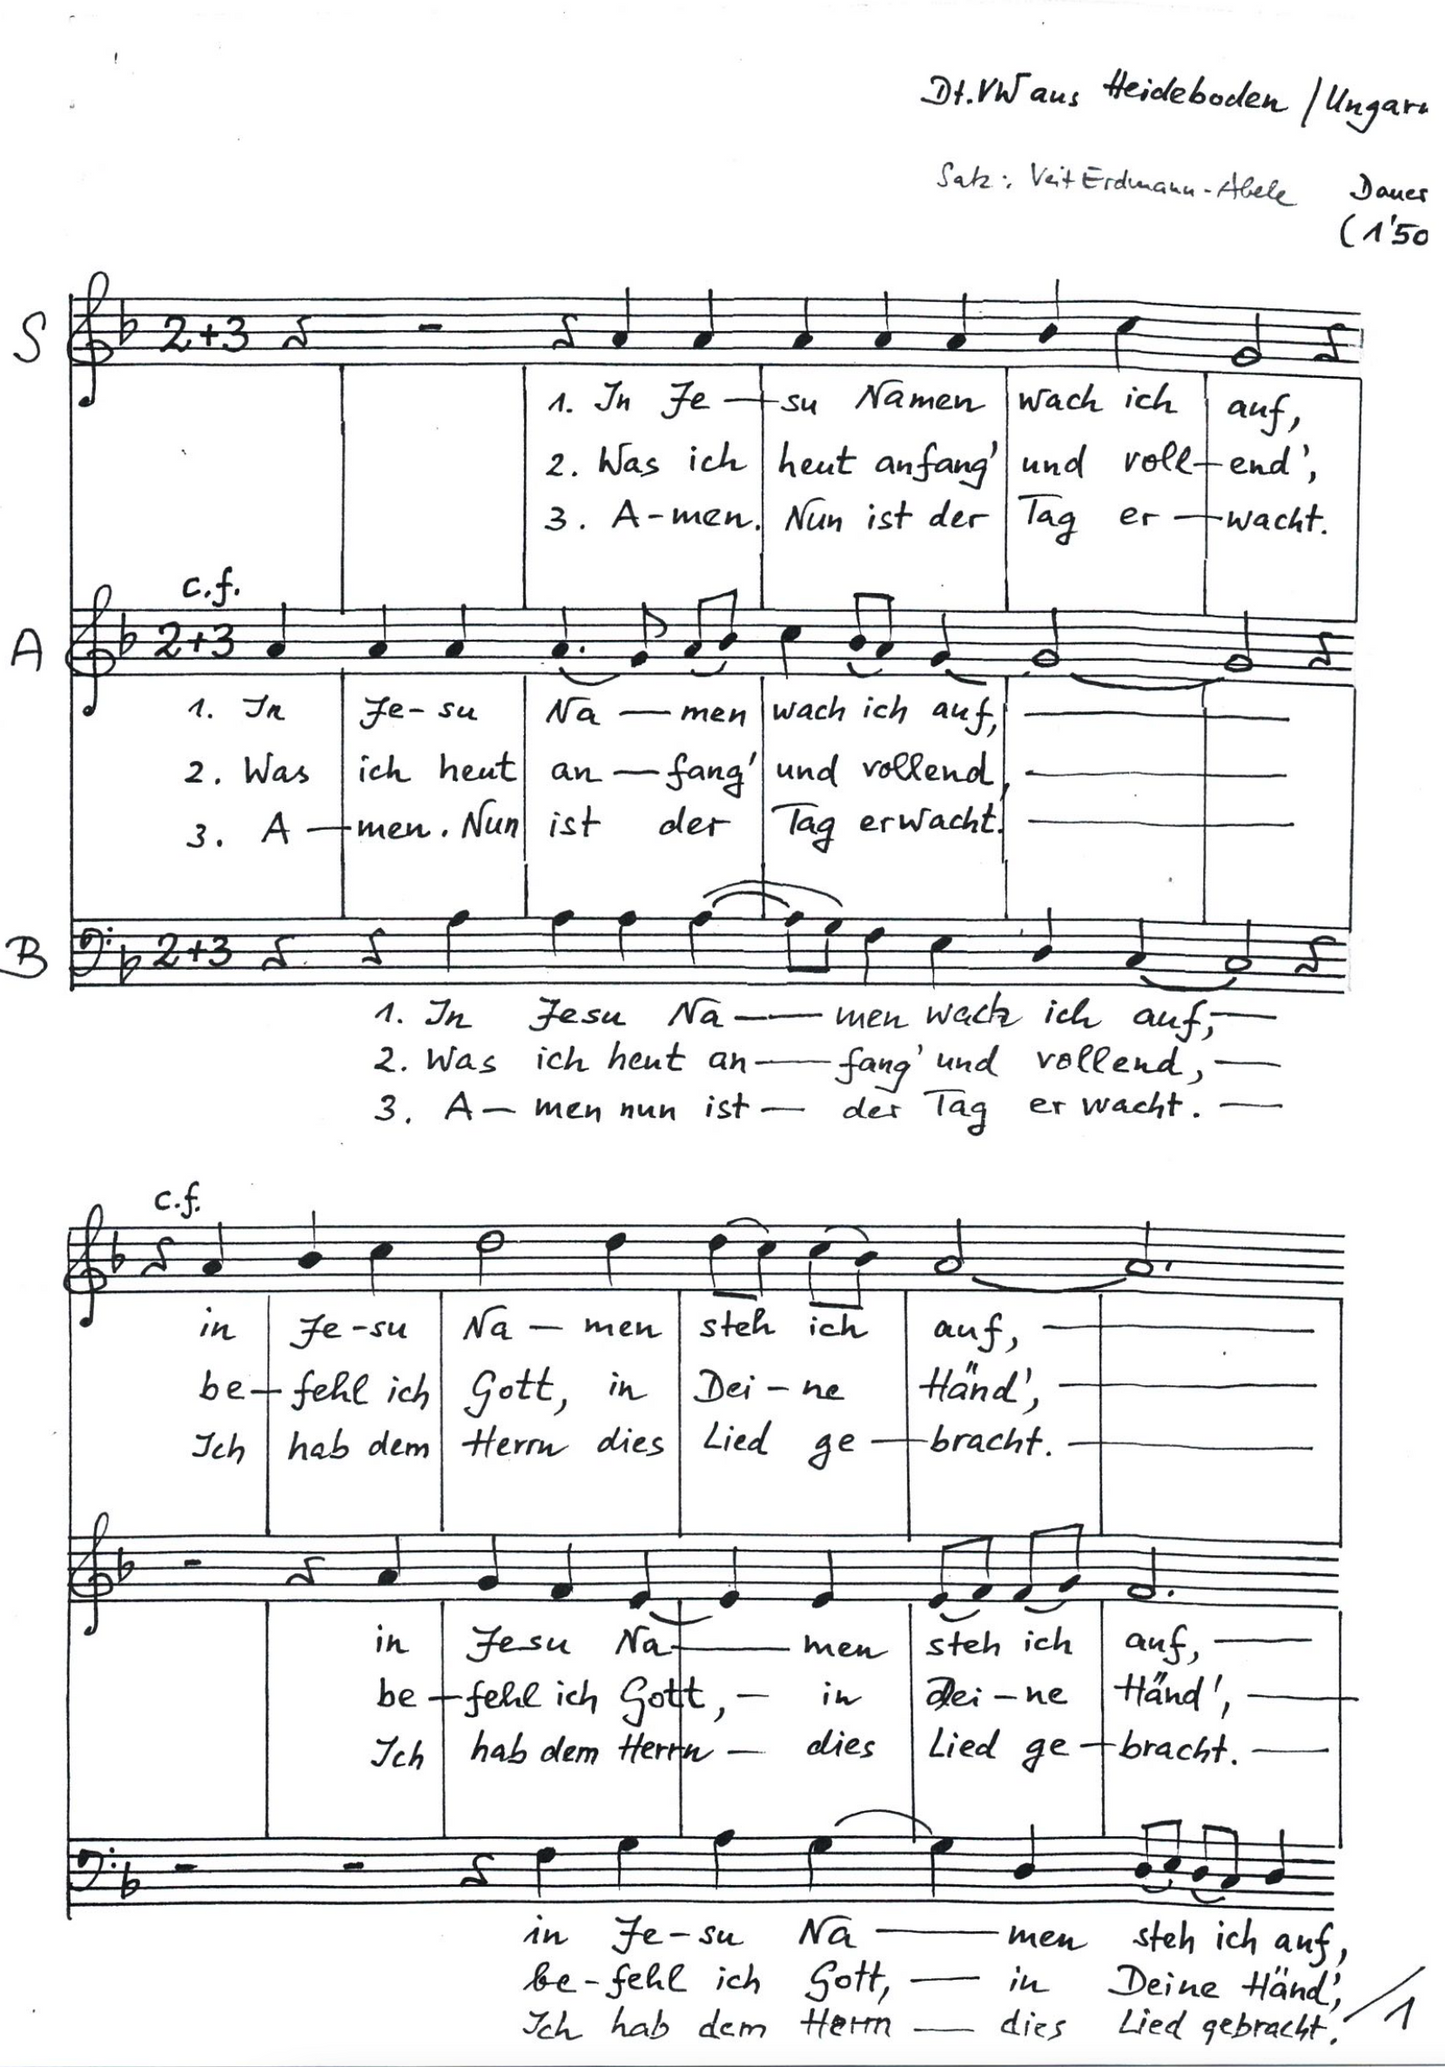 Dt. VW aus Heideboden / Ungarn
Satz: Veit Erdmann-Abele Dauer
(1'50
S 2+3
1. In Je — su Namen wach ich auf,
2. Was ich heut anfang' und voll — end',
3. A-men. Nun ist der Tag er — wacht.
c.f.
A 2+3
1. In Je-su Na — men wach ich auf, —
2. Was ich heut an — fang' und vollend, —
3. A — men. Nun ist der Tag erwacht. —
B 2+3
1. In Jesu Na — men wach ich auf, —
2. Was ich heut an — fang' und vollend, —
3. A — men nun ist — der Tag erwacht. —
c.f.
in Je-su Na — men steh ich auf, —
be — fehl ich Gott, in Dei-ne Händ', —
Ich hab dem Herrn dies Lied ge — bracht. —
in Jesu Na — men steh ich auf, —
be — fehl ich Gott, — in Dei-ne Händ', —
Ich hab dem Herrn — dies Lied ge — bracht. —
in Je-su Na — men steh ich auf,
be-fehl ich Gott, — in Deine Händ',
Ich hab dem Herrn — dies Lied gebracht. /1